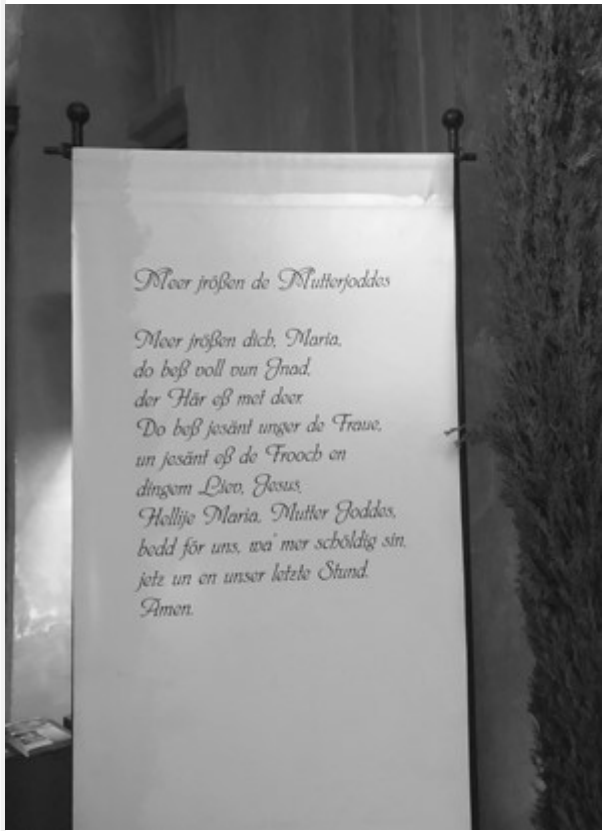 Meer jrößen de Mutterjoddes
Meer jrößen dich, Maria,
do beß voll vun Jnad,
der Här eß met deer.
Do beß jesänt unger de Fraue,
un jesänt eß de Frooch en
dingem Liev, Jesus.
Hellije Maria, Mutter Joddes,
bedd för uns, wa' mer schöldig sin,
jetz un en unser letzte Stund.
Amen.